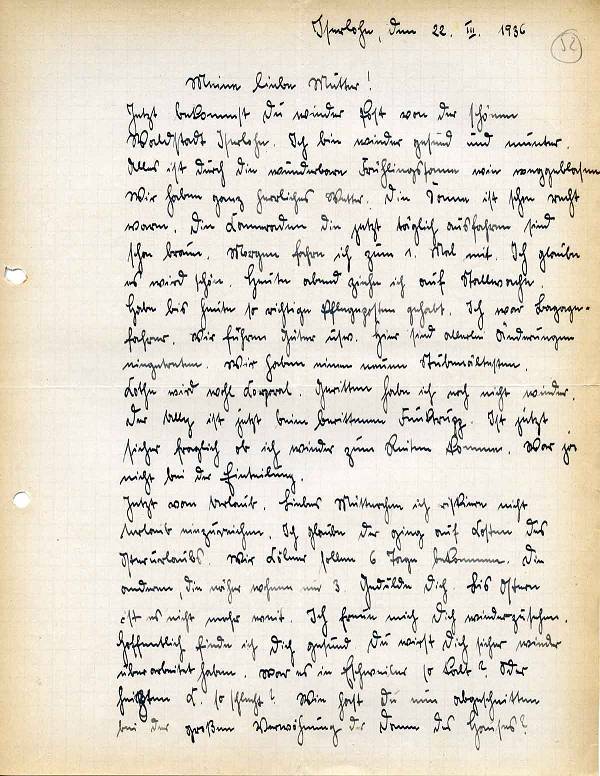 Iserlohn, den 22. III. 1936
52
Meine liebe Mutter!
Jetzt bekommst Du wieder Post von der schönen
Waldstadt Iserlohn. Ich bin wieder gesund und munter.
Alles ist durch die wunderbare Frühlingssonne wie weggeblasen
Wir haben ganz herrliches Wetter. Die Sonne ist schon recht
warm. Die Kameraden die jetzt täglich ausfahren sind
schon braun. Morgen fahre ich zum 1. Mal mit. Ich glaube
es wird schön. Heute abend ziehe ich auf Stallwache.
Habe bis heute so richtige Pflegeposten gehabt. Ich war Bagage-
fahrer. Wir führen Güter usw. Hier sind allerlei Änderungen
eingetreten. Wir haben einen neuen Stubenältesten.
Lothe wird wohl Korporal. Geritten habe ich noch nicht wieder.
Der ist jetzt beim berittenen Funktrupp. Ist jetzt
sicher fraglich ob ich wieder zum Reiten komme. War ja
nicht bei der Einteilung.
Jetzt vom Urlaub. Liebes Mütterchen ich riskiere nicht
Urlaub einzureichen. Ich glaube der ging auf Kosten des
Osterurlaubs. Wir Kölner sollen 6 Tage bekommen. Die
anderen, die näher wohnen nur 3. Gedulde Dich. Bis Ostern
ist es nicht mehr weit. Ich freue mich Dich wiederzusehen.
Hoffentlich finde ich Dich gesund Du wirst Dich sicher wieder
überarbeitet haben. War es in Eschweiler so kalt? Oder
heizten K. so schlecht? Wie hast du nun abgeschnitten
bei der großen Verwöhnung der Dame des Hauses?